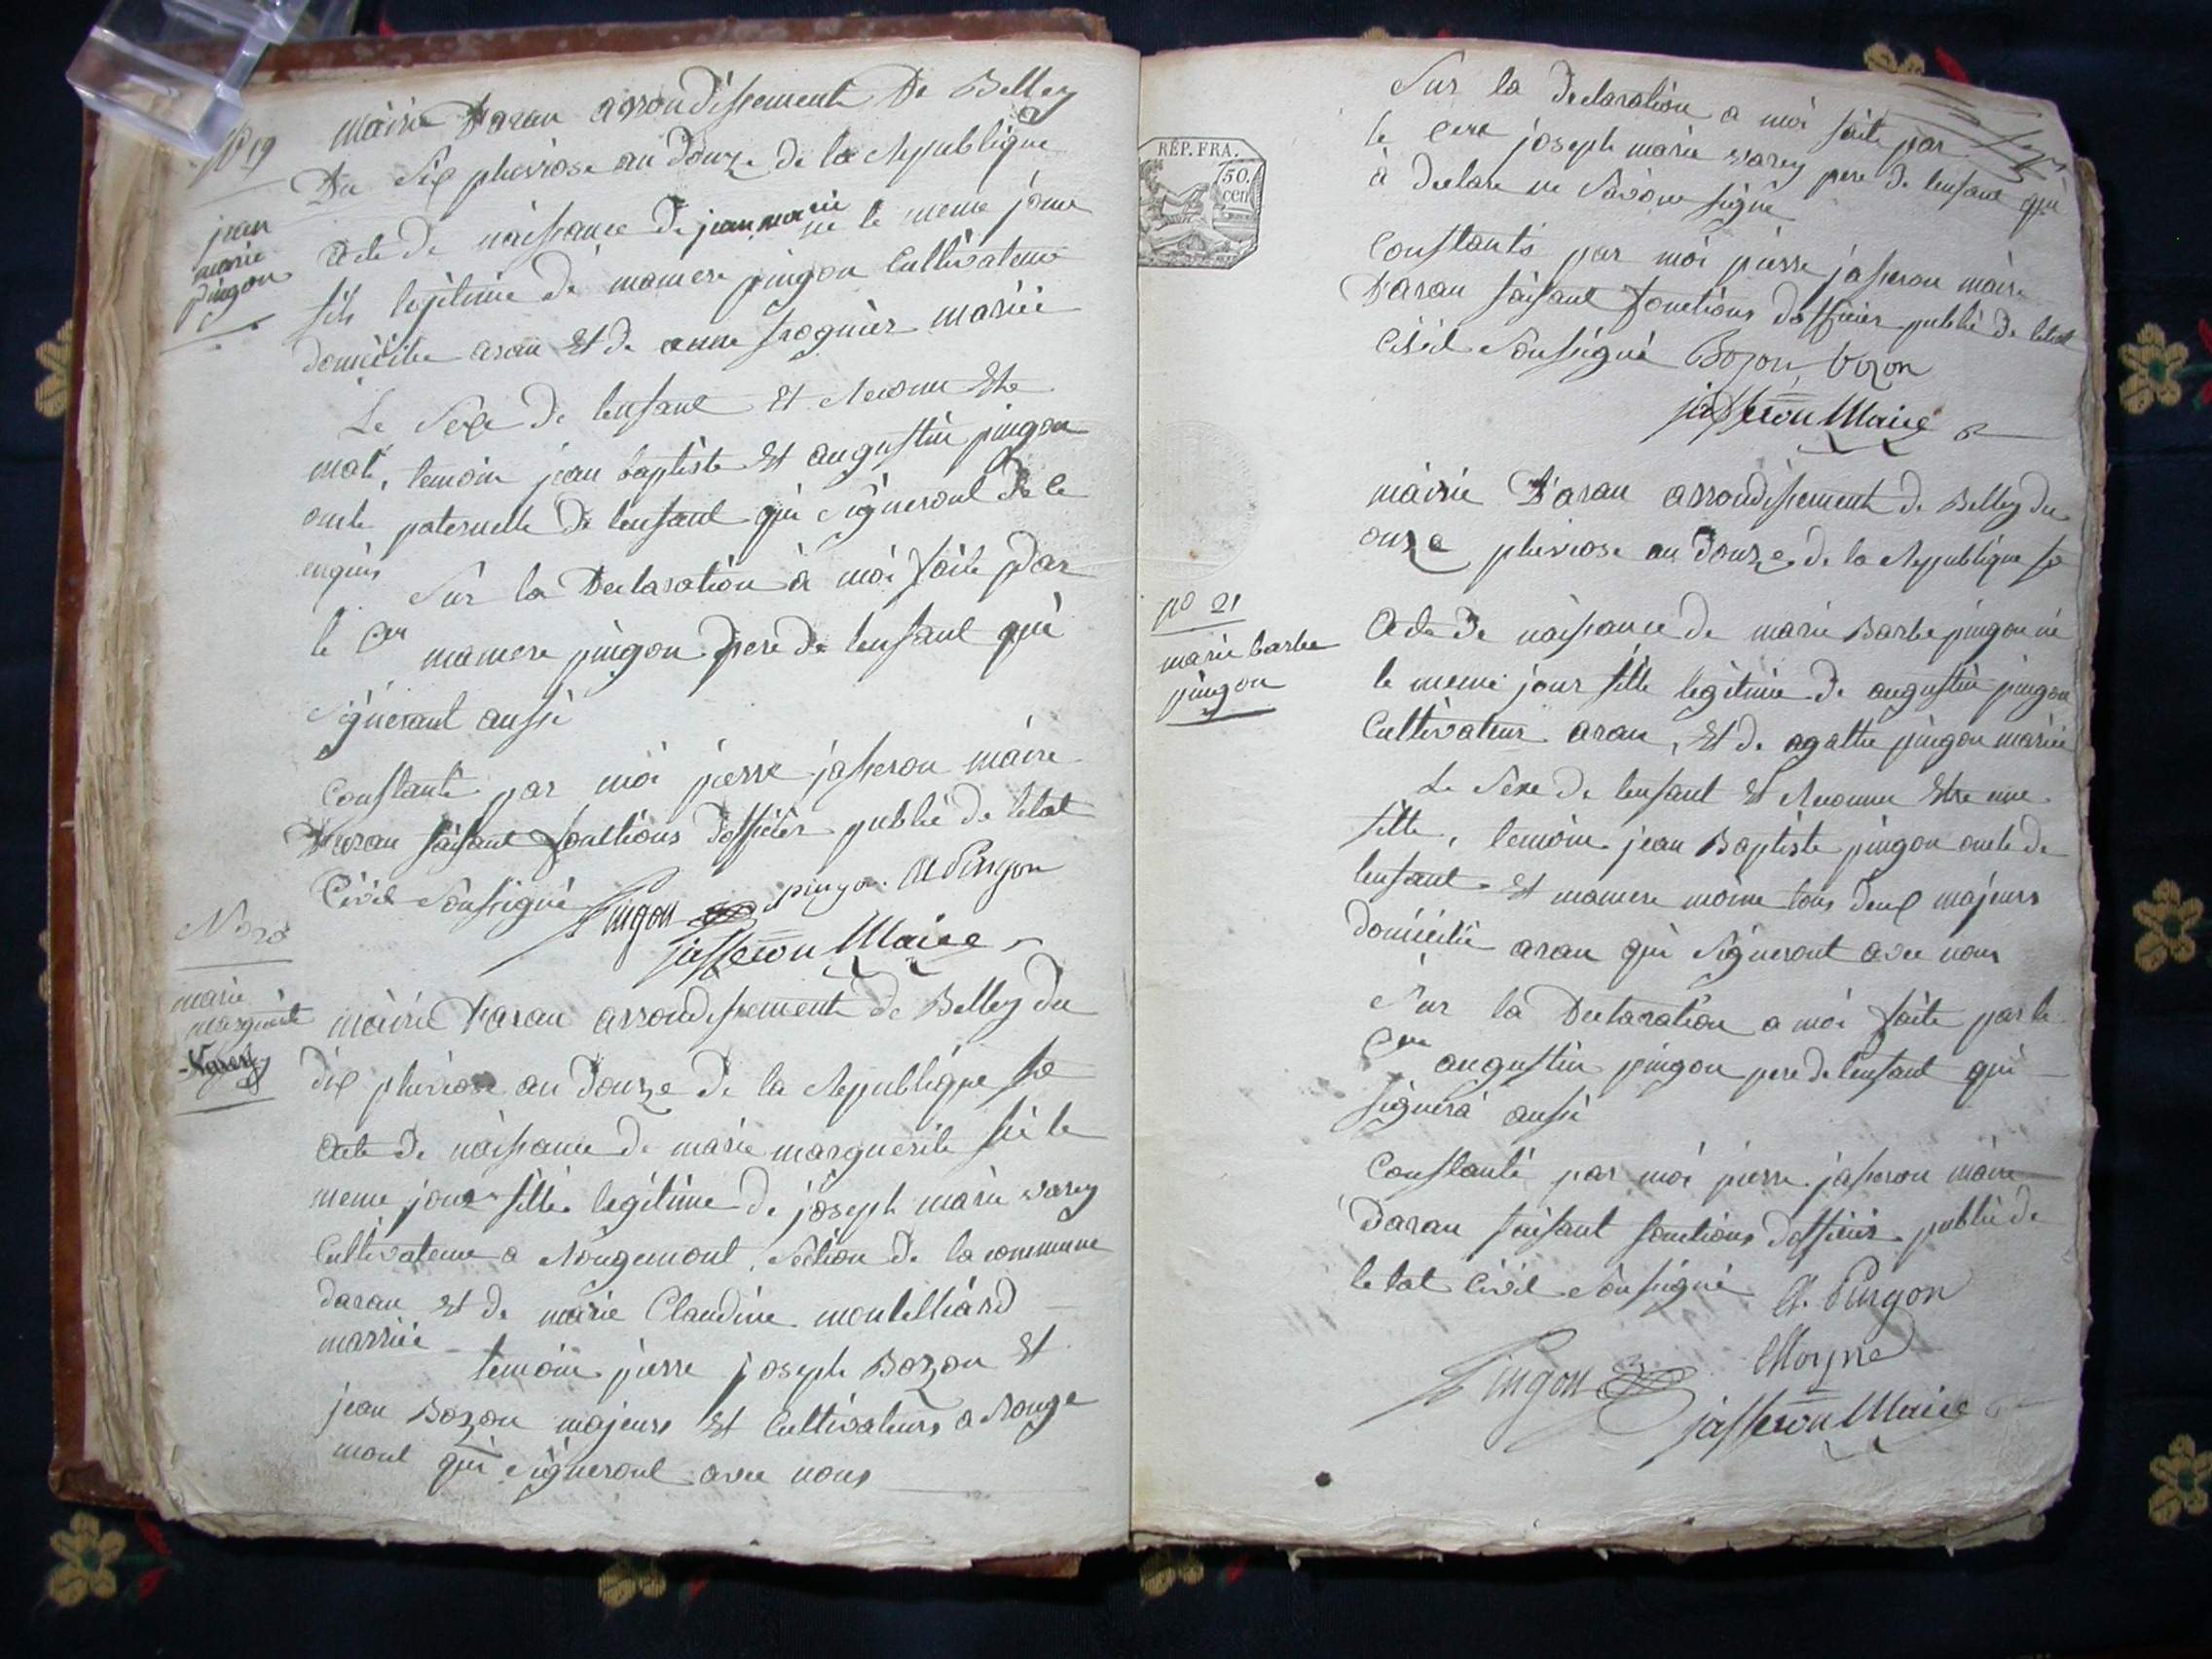 No 19
mairie Daran arrondissement De Belley
Du Six pluviose an Douze de la Republique
jean
marie
pingon
acte de naissance de jean marie né le meme jour
fils legitime de mamere pingon Cultivateur
domicilie aran Et de anne frognier mariée
Le Sexe de lenfant Et Reconnu Etre
mal, temoin jean baptiste Et augustin pingon
oncle paternelle de lenfant qui Signeront de ce
enquis
Sur la Declaration à moi faite par
le Cen mamere pingon pere de lenfant qui
Signeront aussi
Constanté par moi pierre jasseron maire
Daran faisant fonctions dofficier public de letat
Civil Soussigné Pingon pingon A Pingon
jasseron Maire
No 20
marie
marguerite
Varey
mairie Daran arrondissement de Belley du
dix pluviose an Douze De la Republique
acte De naissance de marie marguerite née le
meme jour fille legitime de joseph marie varey
Cultivateur a Rougemont, Section De la commune
daran Et de marie Claudine montelliard
marriée
temoin pierre joseph Bozon Et
jean Bozon majeurs Et Cultivateurs a Rouge
mont qui Signeront avec nous
RÉP. FRA.
50.
cen
Sur la declaration a moi faite par
le Cen joseph marie varey pere de lenfant qui
à declare ne Savoir signé
Constanté par moi pierre jasseron maire
Daran faisant fonctions dofficier public de letat
Civil Soussigné Bozon, bozon
jasseron Maire
mairie Daran arrondissement de Belley du
onze pluviose an Douze de la Republique
no 21
marie barbe
pingon
Acte de naissance de marie Barbe pingon né
le meme jour fille legitime de augustin pingon
Cultivateur aran, Et de agathe pingon mariée
Le Sexe de lenfant Et Reconnu Etre une
fille, temoin jean Baptiste pingon oncle de
lenfant Et mamere moine tous deux majeurs
domicilié aran qui Signeront avec nous
Sur la Declaration a moi faite par le
Cen augustin pingon pere de lenfant qui
signera aussi
Constanté par moi pierre jasseron maire
Daran faisant fonctions dofficier public de
letat Civil Soussigné A. Pingon
Pingon Moyne
jasseron Maire